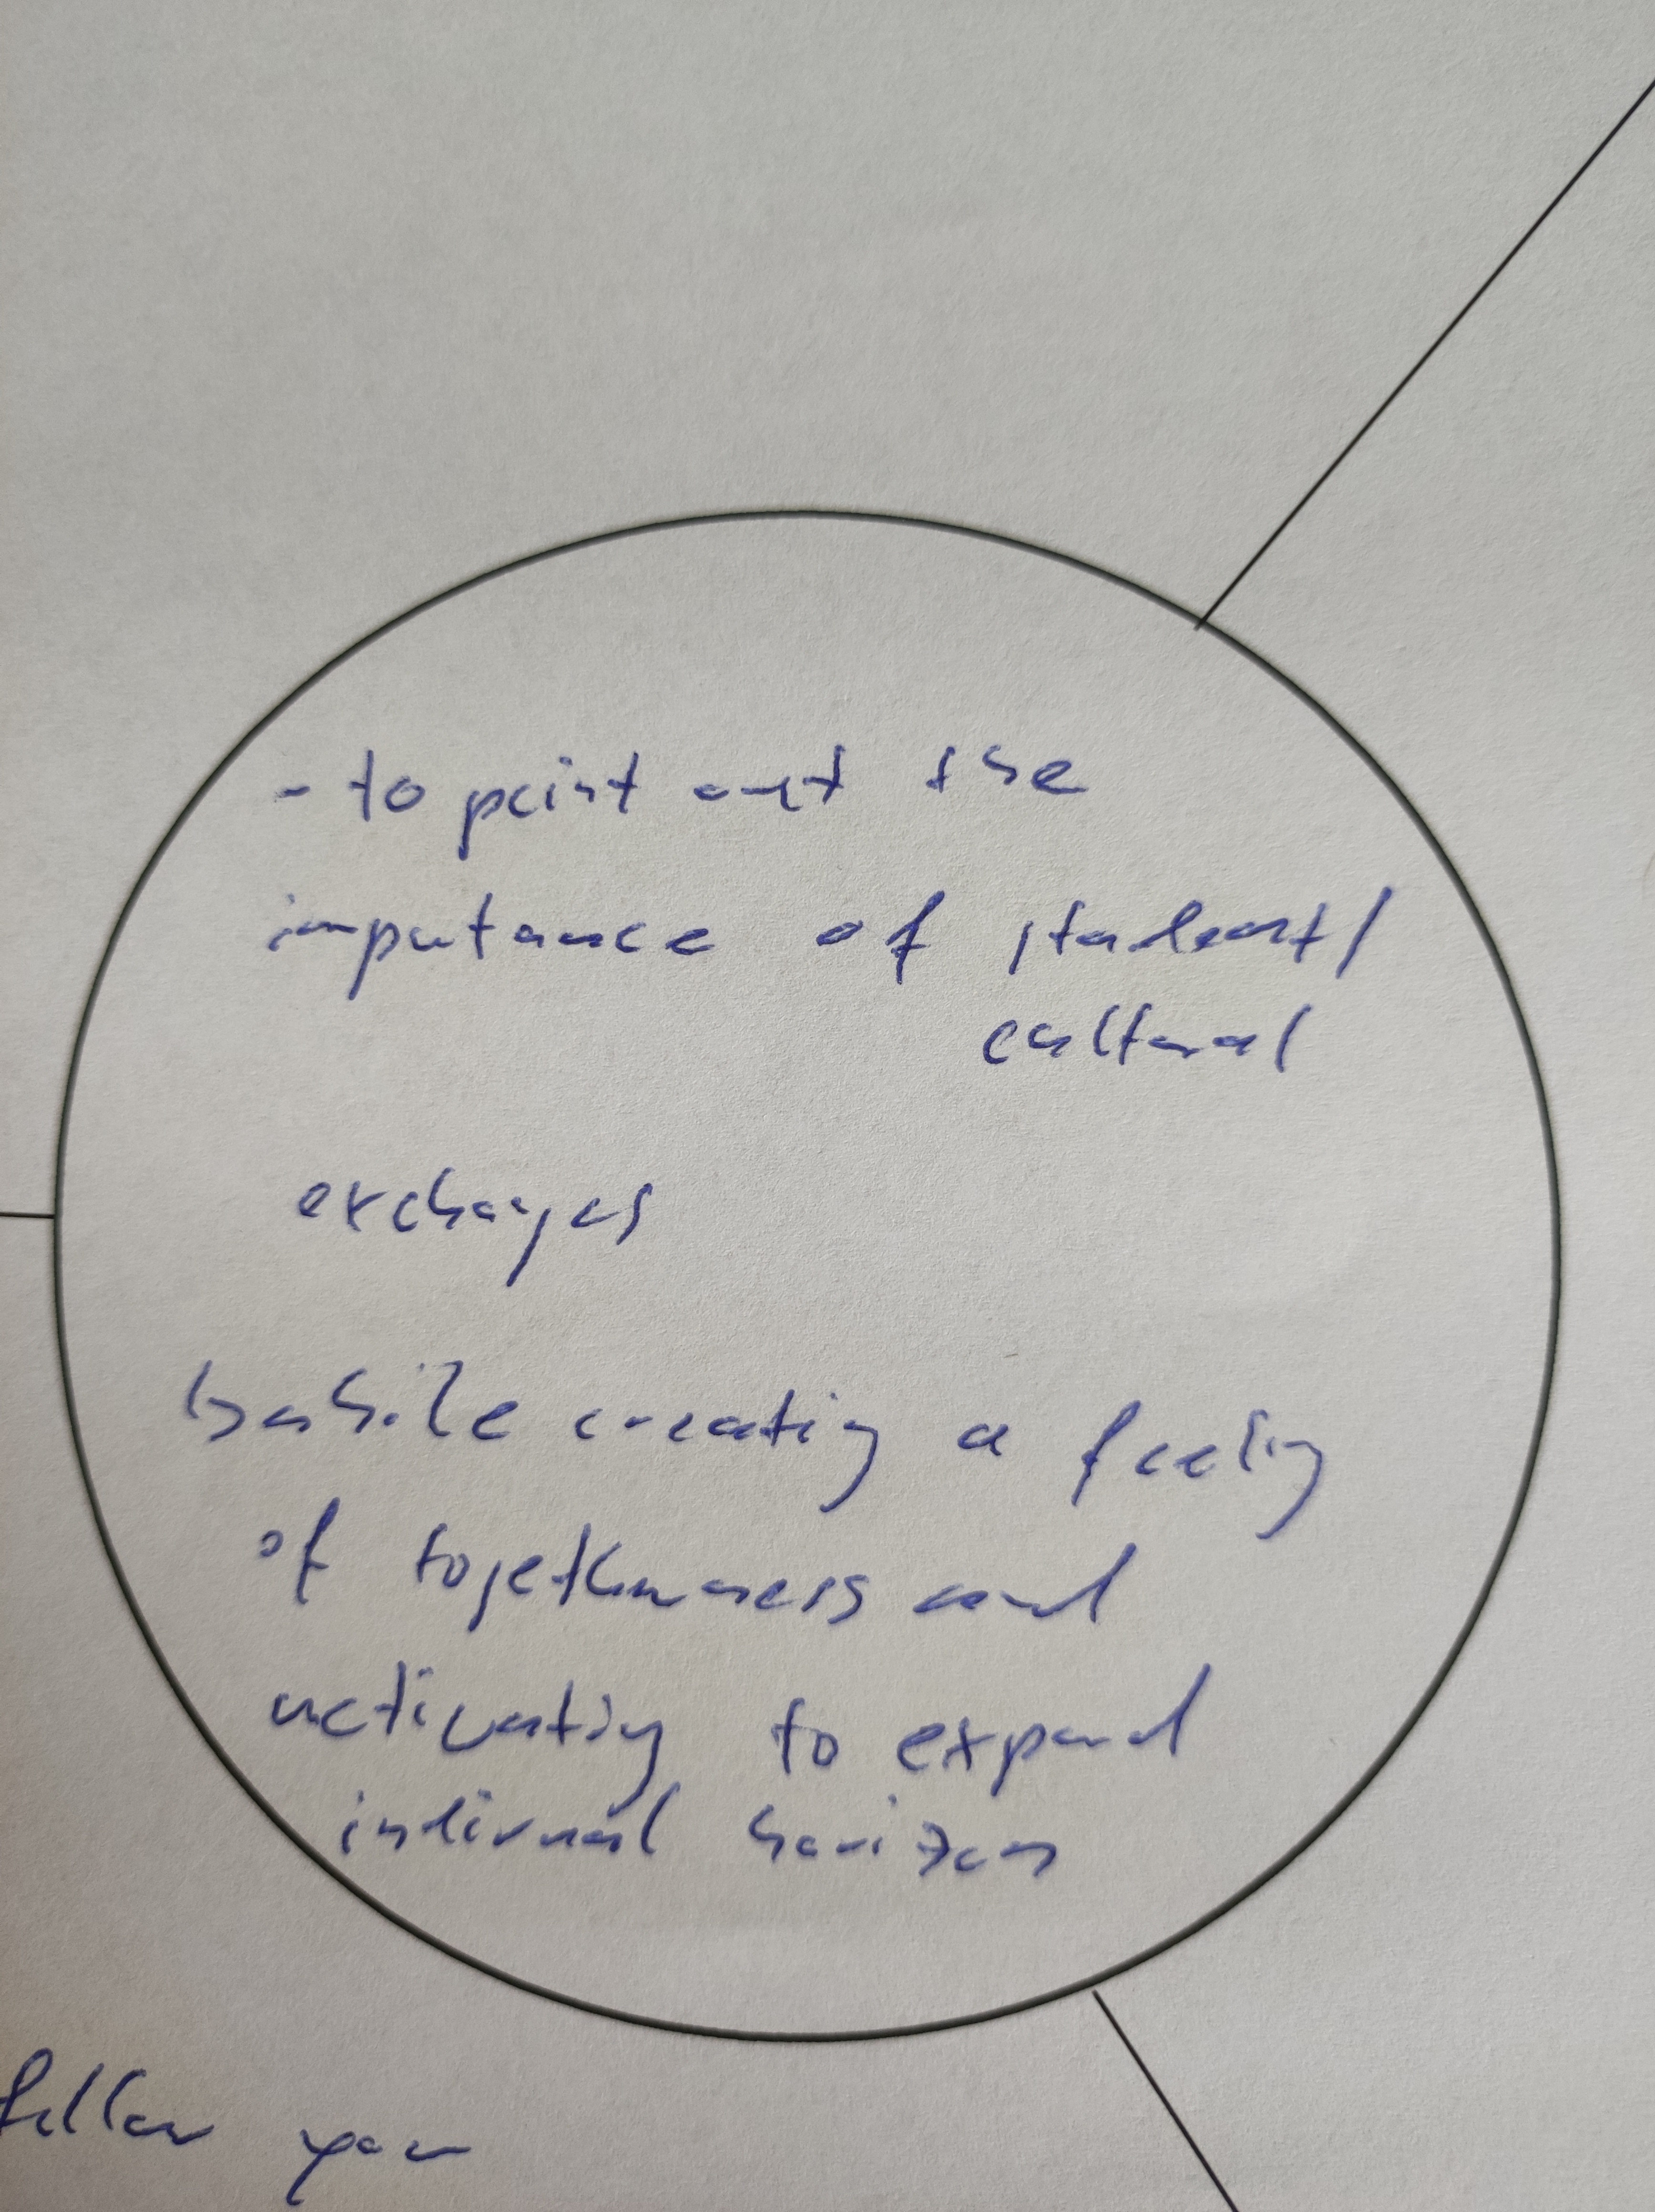 - to point out the
importance of student/
cultural
exchanges
while creating a feeling
of togetherness and
activating to expand
horizon
follow your